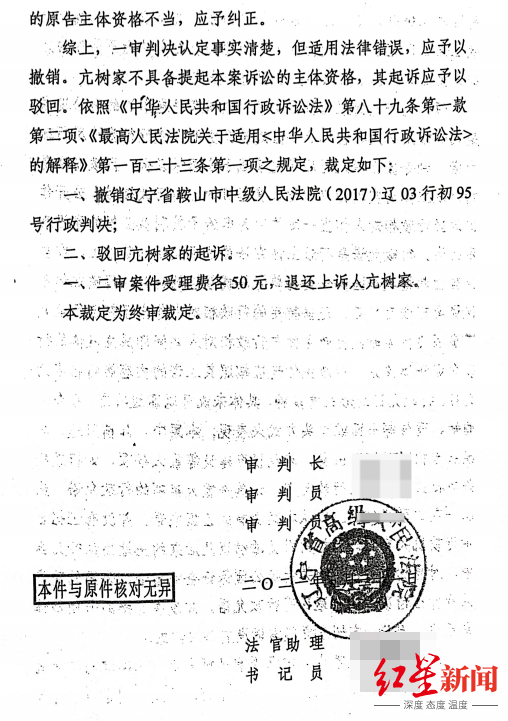 的原告主体资格不当，应予纠正。
综上，一审判决认定事实清楚，但适用法律错误，应予以
撤销。亢树家不具备提起本案诉讼的主体资格，其起诉应予以
驳回。依照《中华人民共和国行政诉讼法》第八十九条第一款
第二项、《最高人民法院关于适用<中华人民共和国行政诉讼法>
的解释》第一百二十三条第一项之规定，裁定如下：
一、撤销辽宁省鞍山市中级人民法院（2017）辽03行初95
号行政判决；
二、驳回亢树家的起诉。
一、二审案件受理费各50元，退还上诉人亢树家。
本裁定为终审裁定。
审 判 长
审 判 员
审 判 员
辽宁省高级人民法院
二〇二
本件与原件核对无异
法 官 助 理
书 记 员
红星新闻
深度 态度 温度